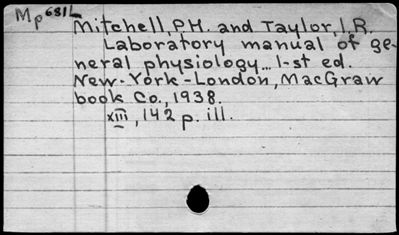 Mp681L
Mitchell, P.H. and Taylor, I.R.
Laboratory manual of ge-
neral physiology... 1-st ed.
New-York-London, MacGraw
book Co., 1938.
XIII, 142 p. ill.